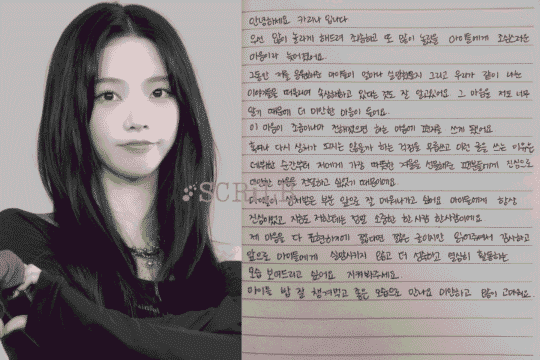 안녕하세요 카리나 입니다
우선 많이 놀라게 해드려 죄송하고 또 많이 놀랐을 마이들에게 조심스러운
마음이라 늦어졌어요.
그동안 저를 응원해준 마이들이 얼마나 실망했을지 그리고 우리가 같이 나눈
이야기들을 떠올리며 속상해하고 있다는 것도 잘 알고있어요. 그 마음을 저도 너무
알기 때문에 더 미안한 마음이 들어요.
이 마음이 조금이나마 전해졌으면 하는 마음에 편지를 쓰게 됐어요
혹여나 다시 상처가 되지는 않을까 하는 걱정을 무릅쓰고 이런 글을 쓰는 이유는
데뷔한 순간부터 저에게 가장 따뜻한 겨울을 선물해준 팬분들에게 진심으로
미안한 마음을 전달하고 싶었기 때문이에요
마이들이 상처받은 부분 앞으로 잘 메워나가고 싶어요 마이들에게 항상
진심이었고 지금도 저한테는 정말 소중한 한 사람 한사람이에요
제 마음을 다 짧다면 짧은 글이지만 읽어주셔서 감사하고
앞으로 마이들에게 실망시키지 않고 더 성숙하고 열심히 활동하는
모습 보여드리고 싶어요 지켜봐주세요.
마이들 밥 잘 챙겨먹고 좋은 모습으로 만나요 미안하고 많이 고마워요.